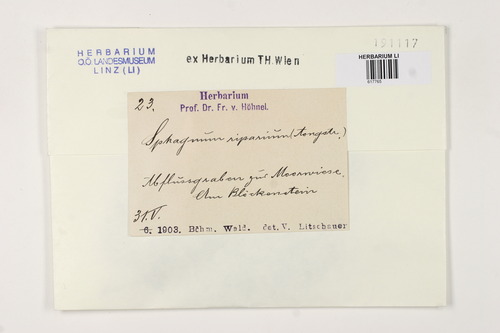 191117
HERBARIUM
O.Ö. LANDESMUSEUM
LINZ (LI)
ex Herbarium TH. Wien
HERBARIUM LI
617763
23.
Herbarium
Prof. Dr. Fr. v. Höhnel.
Sphagnum riparium (Aongstr.)
Abflussgraben zur Moorwiese.
Am Blöckenstein
31.V.
6. 1903. Böhm. Wald. det. V. Litschauer